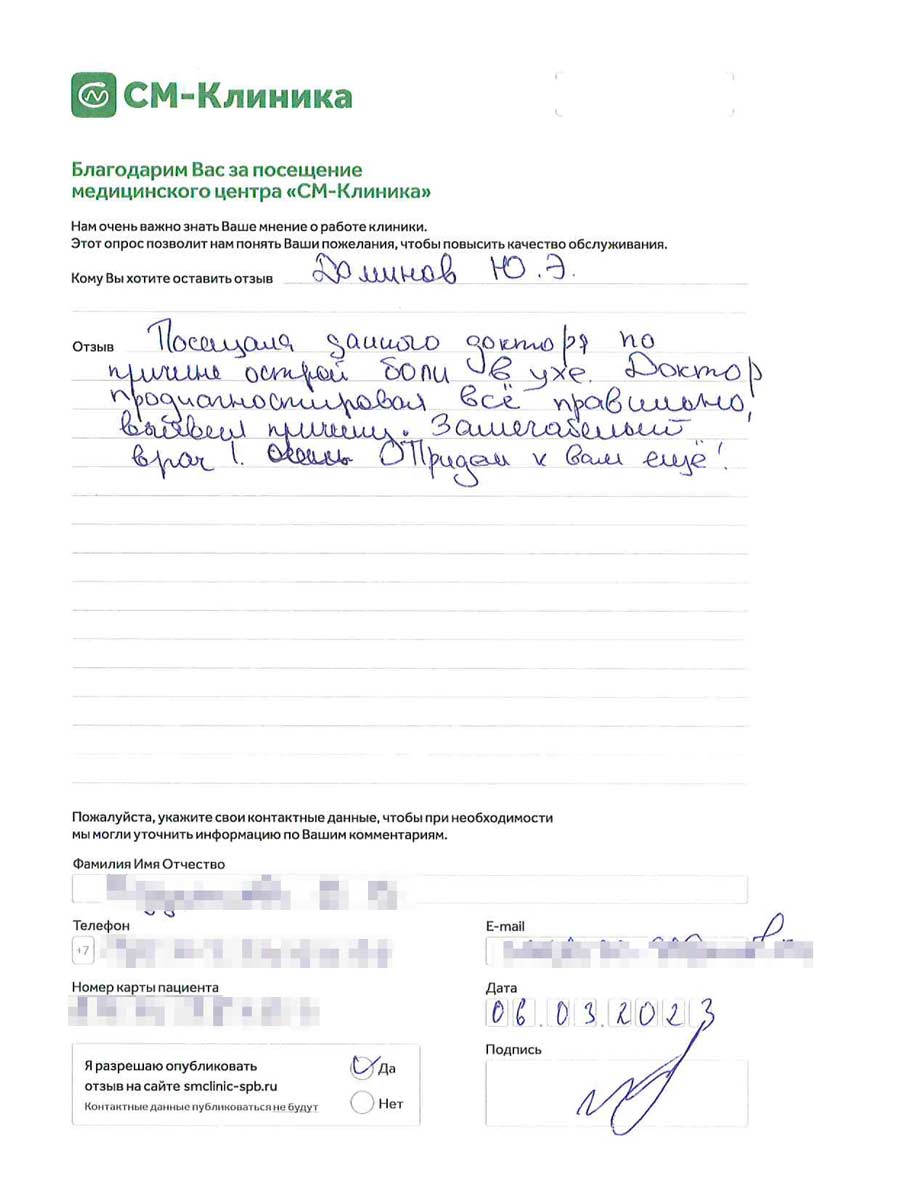 СМ-Клиника
Благодарим Вас за посещение
медицинского центра «СМ-Клиника»
Нам очень важно знать Ваше мнение о работе клиники.
Этот опрос позволит нам понять Ваши пожелания, чтобы повысить качество обслуживания.
Кому Вы хотите оставить отзыв Доминов Ю.Э.
Отзыв Посещала данного доктора по
причине острой боли в ухе. Доктор
продиагностировал всё правильно,
выявил причину. Замечательный
врач! Придем к вам ещё!
Пожалуйста, укажите свои контактные данные, чтобы при необходимости
мы могли уточнить информацию по Вашим комментариям.
Фамилия Имя Отчество
Телефон
E-mail
+7
Номер карты пациента
Дата
06.03.2023
Я разрешаю опубликовать
отзыв на сайте smclinic-spb.ru
Контактные данные публиковаться не будут
Да
Нет
Подпись